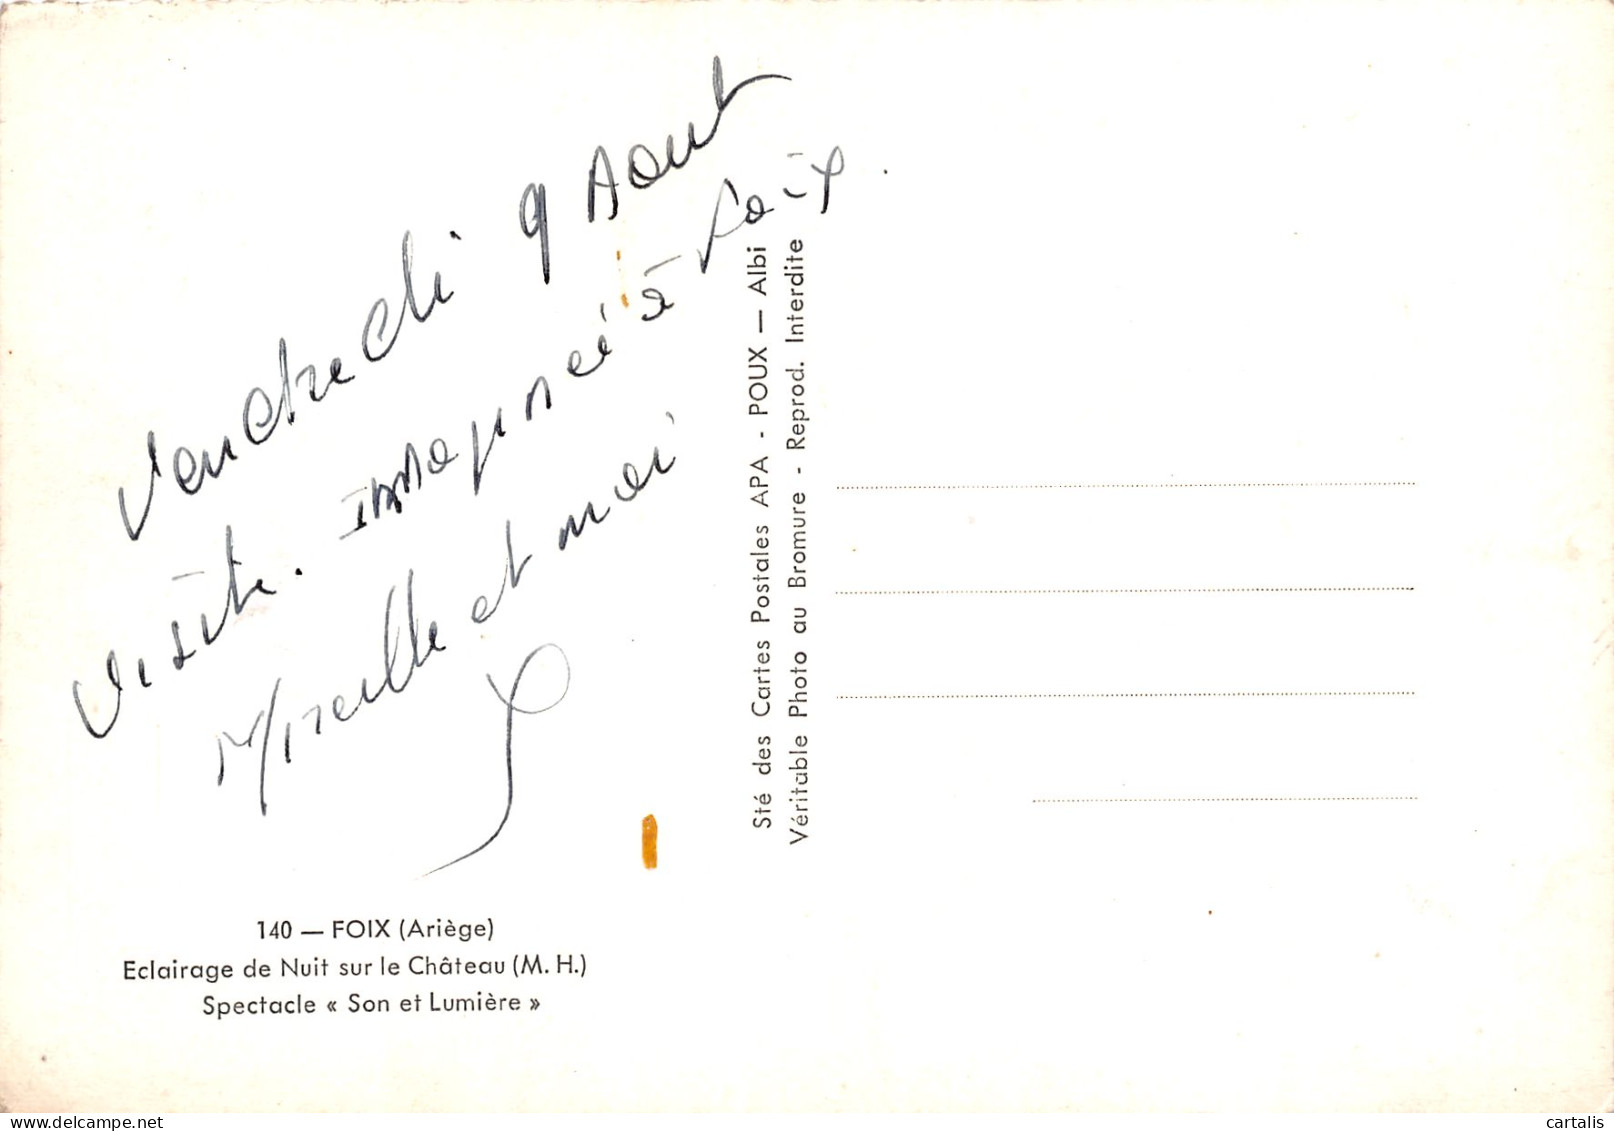 Vendredi 9 Aout
Visite. à Foix
Mireille et moi
140 — FOIX (Ariège)
Eclairage de Nuit sur le Château (M. H.)
Spectacle « Son et Lumière »
Sté des Cartes Postales APA - POUX — Albi
Véritable Photo au Bromure - Reprod. Interdite
cartalis